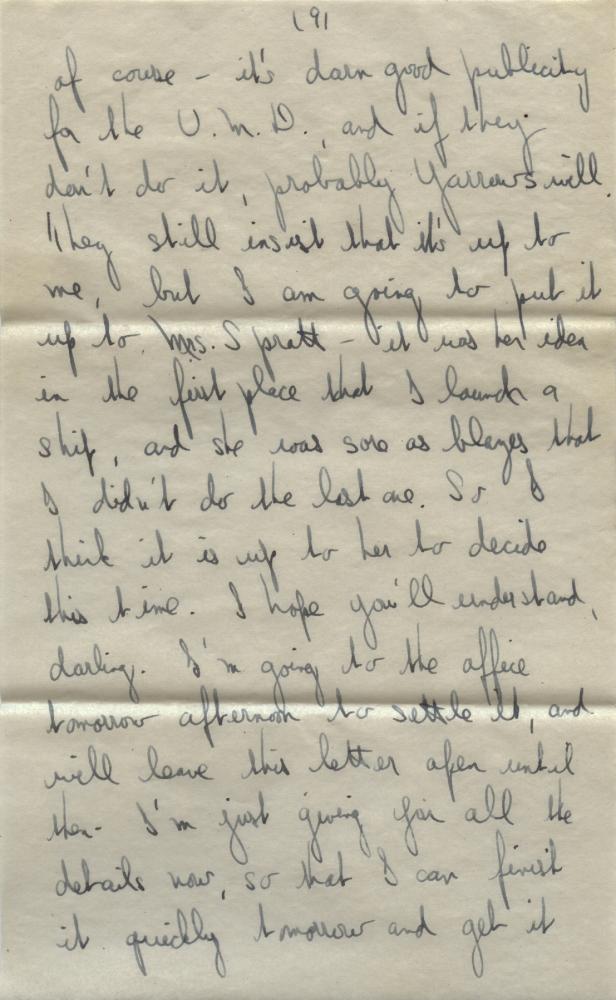 (9)
of course - it's darn good publicity
for the U.M.D., and if they
don't do it, probably Yarrows will.
They still insist that it's up to
me, but I am going to put it
up to Mrs. Spratt - it was her idea
in the first place that I launch a
ship, and she was sore as blazes that
I didn't do the last one. So I
think it is up to her to decide
this time. I hope you'll understand,
darling. I'm going to the office
tomorrow afternoon to settle it, and
will leave this letter open until
then. I'm just giving you all the
details now, so that I can finish
it quickly tomorrow and get it